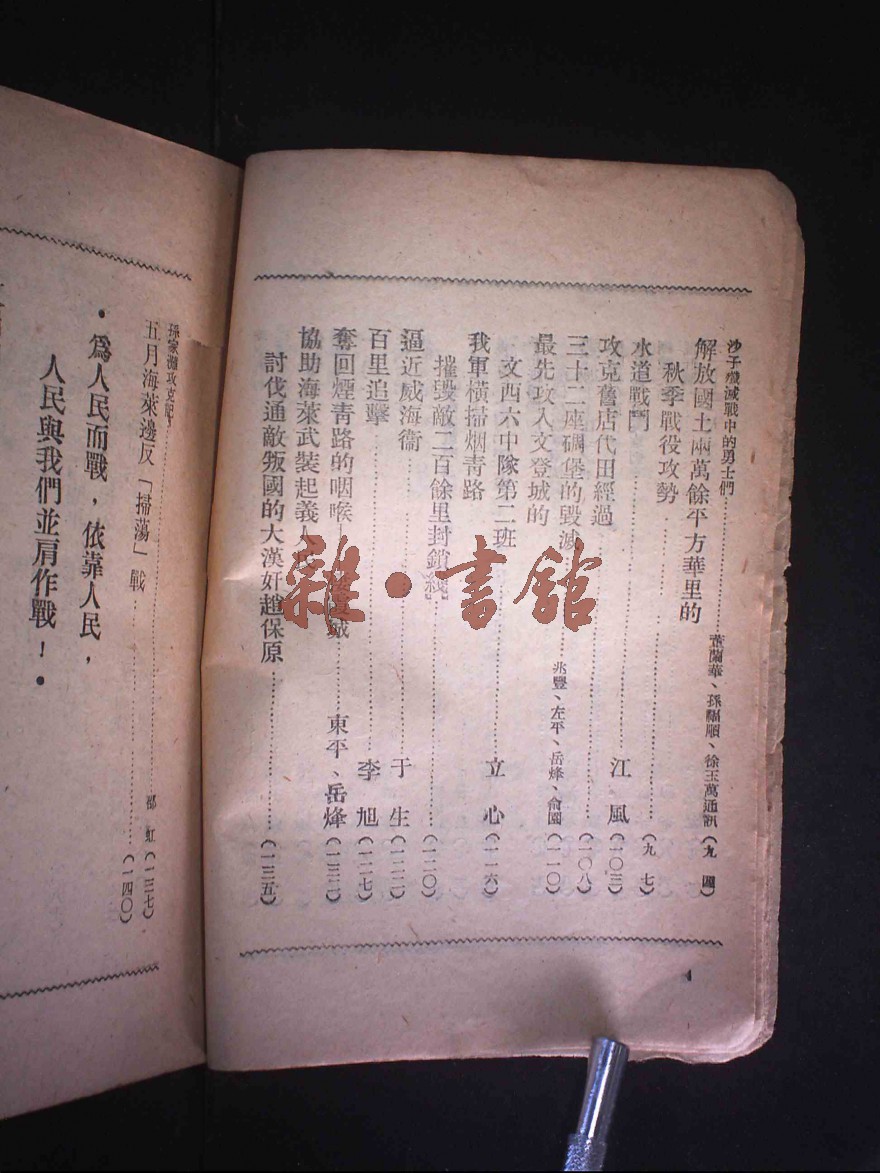 沙子殲滅戰中的勇士們……蘭華、孫福順、徐玉萬通訊(九四)
解放國土兩萬餘平方華里的
秋季戰役攻勢……(九七)
水道戰鬥……江風(一〇三)
攻克舊店代田經過……(一〇八)
三十二座碉堡的毀滅……兆豐、左平、岳烽、俞園(一一〇)
最先攻入文登城的
文西六中隊第二班……立心(一一六)
我軍橫掃烟青路
摧毀敵二百餘里封鎖綫……(一二〇)
逼近威海衞……于生(一二二)
百里追擊……李旭(一二七)
奪回煙青路的咽喉……東平、岳烽(一三二)
協助海萊武裝起義人民
討伐通敵叛國的大漢奸趙保原……(一三五)
孫家灘攻克記……鄒虹(一三七)
五月海萊邊反「掃蕩」戰……(一四〇)
•為人民而戰,依靠人民,
人民與我們並肩作戰!•
雜·書館